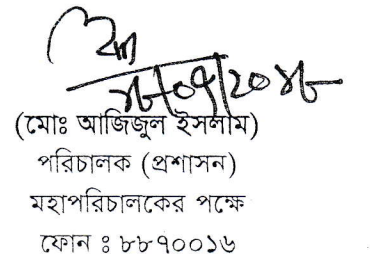 (মোঃ আজিজুল ইসলাম)
পরিচালক (প্রশাসন)
মহাপরিচালকের পক্ষে
ফোন ঃ ৮৮৭০০১৬